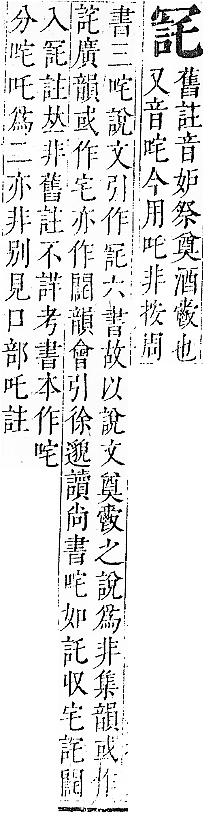 㓃
舊註音妒祭奠酒爵也
又音咤今用吒非按周
書三咤說文引作㓃六書故以說文奠爵之說爲非集韻或作
詫廣韻或作宅亦作韻會引徐邈讀尚書咤如託収宅詫
入㓃註𠀤非舊註不詳考書本作咤
分咤吒爲二亦非别見口部吒註